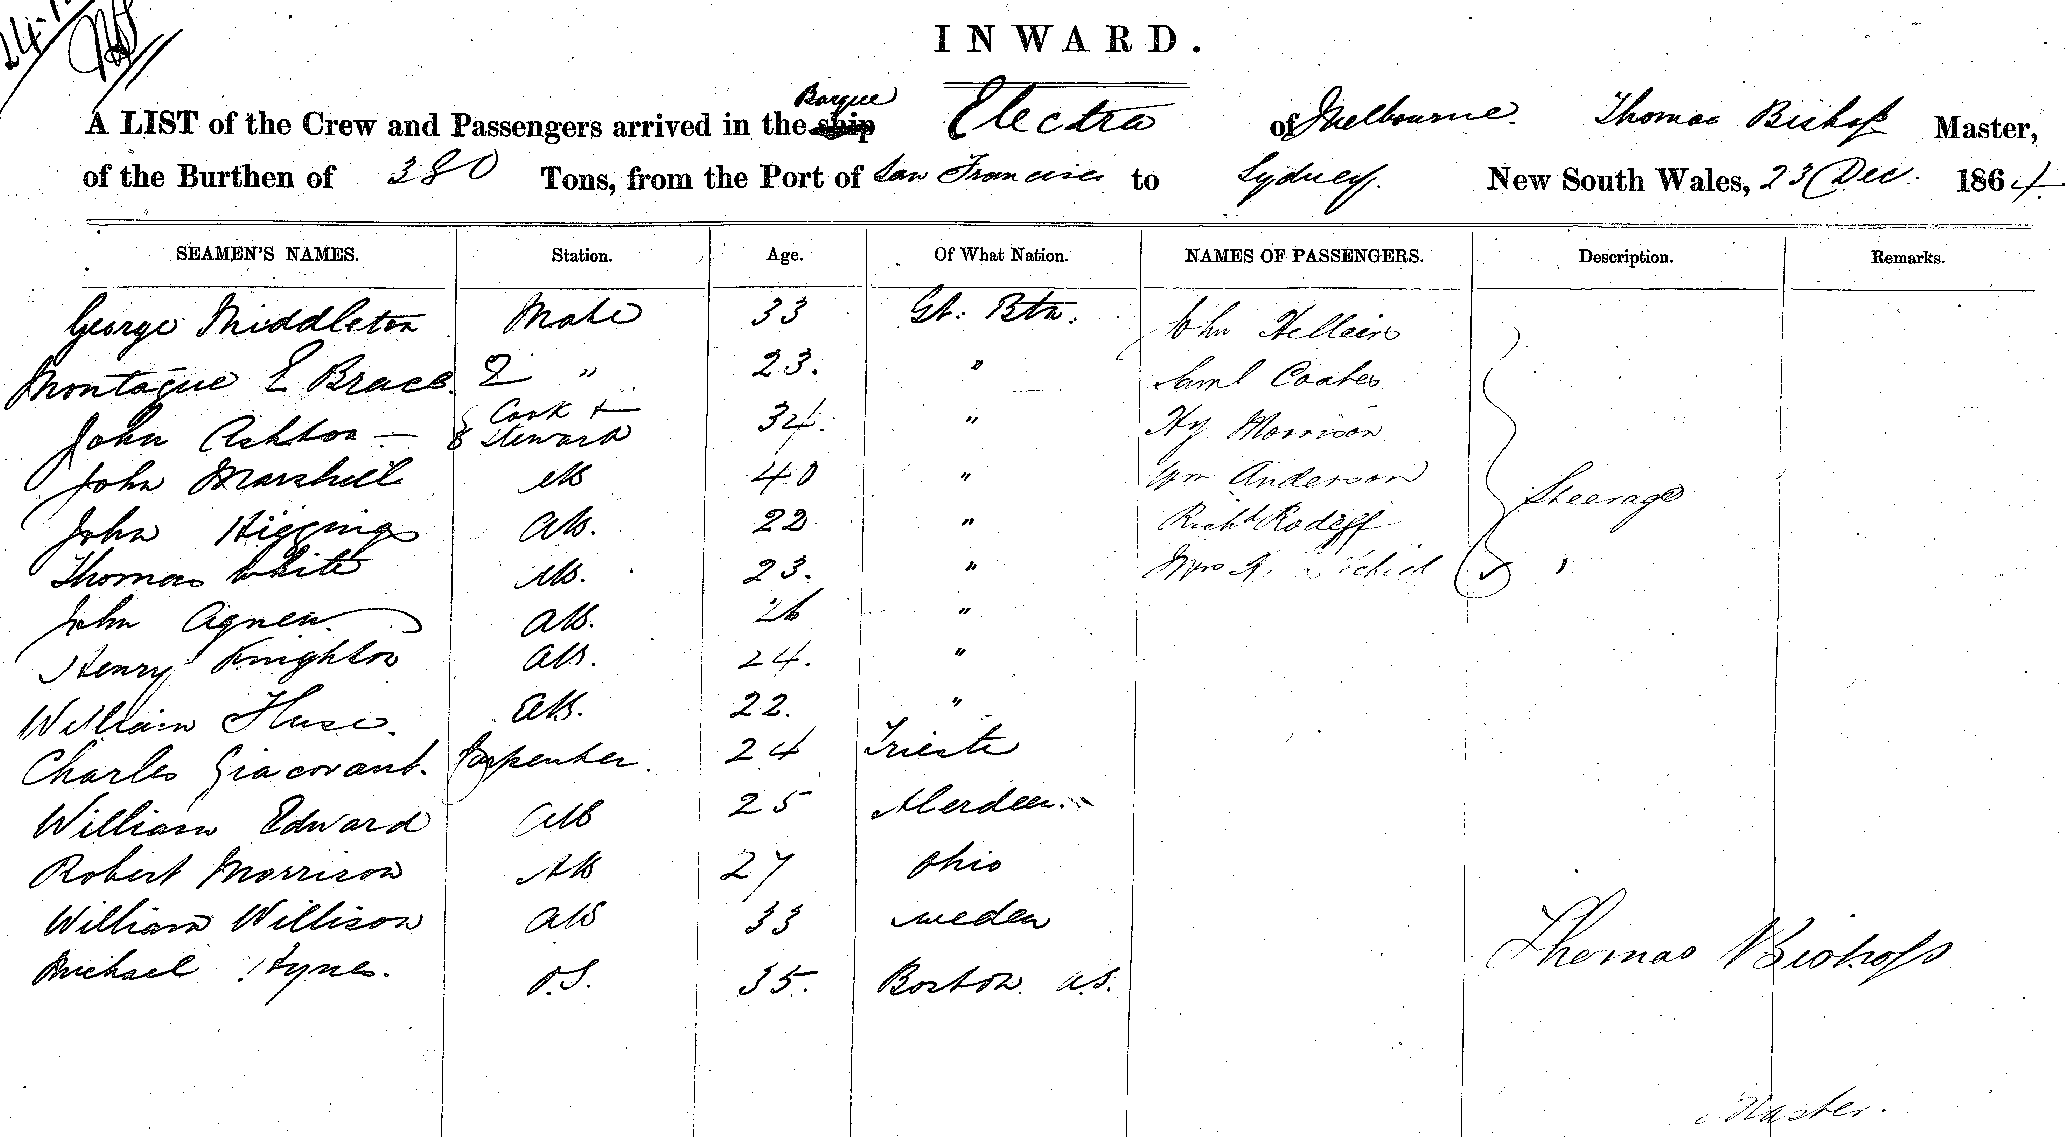 INWARD.
A LIST of the Crew and Passengers arrived in the Barque ship Electra of Melbourne. Thomas Bishop Master,
of the Burthen of 380 Tons, from the Port of San Francisco to Sydney. New South Wales, 23 Dec. 1864.
SEAMEN'S NAMES. Station. Age. Of What Nation. NAMES OF PASSENGERS. Description. Remarks.
George Middleton Mate 33 Gt. Btn. John
Montague E Brace 2 " 23. " Saml Coates
John Ashton — Cook + Steward 34. " Hy Morrison
John Marshell AB 40 " Wm Anderson Steerage
John Higgins AB. 22 " Richd
Thomas White AB. 23. " Mrs "
John Agnew AB. 26 "
Henry Knighton AB. 24. "
William Huse. AB. 22. "
Charles Giacovant. Carpenter. 24 Trieste
William Edward AB 25 Aberdeen
Robert Morrison AB 27 Ohio
William Willison AB 33 Sweden
Michael Hynes. O.S. 35. Boston U.S.
Thomas Bishop
Master.